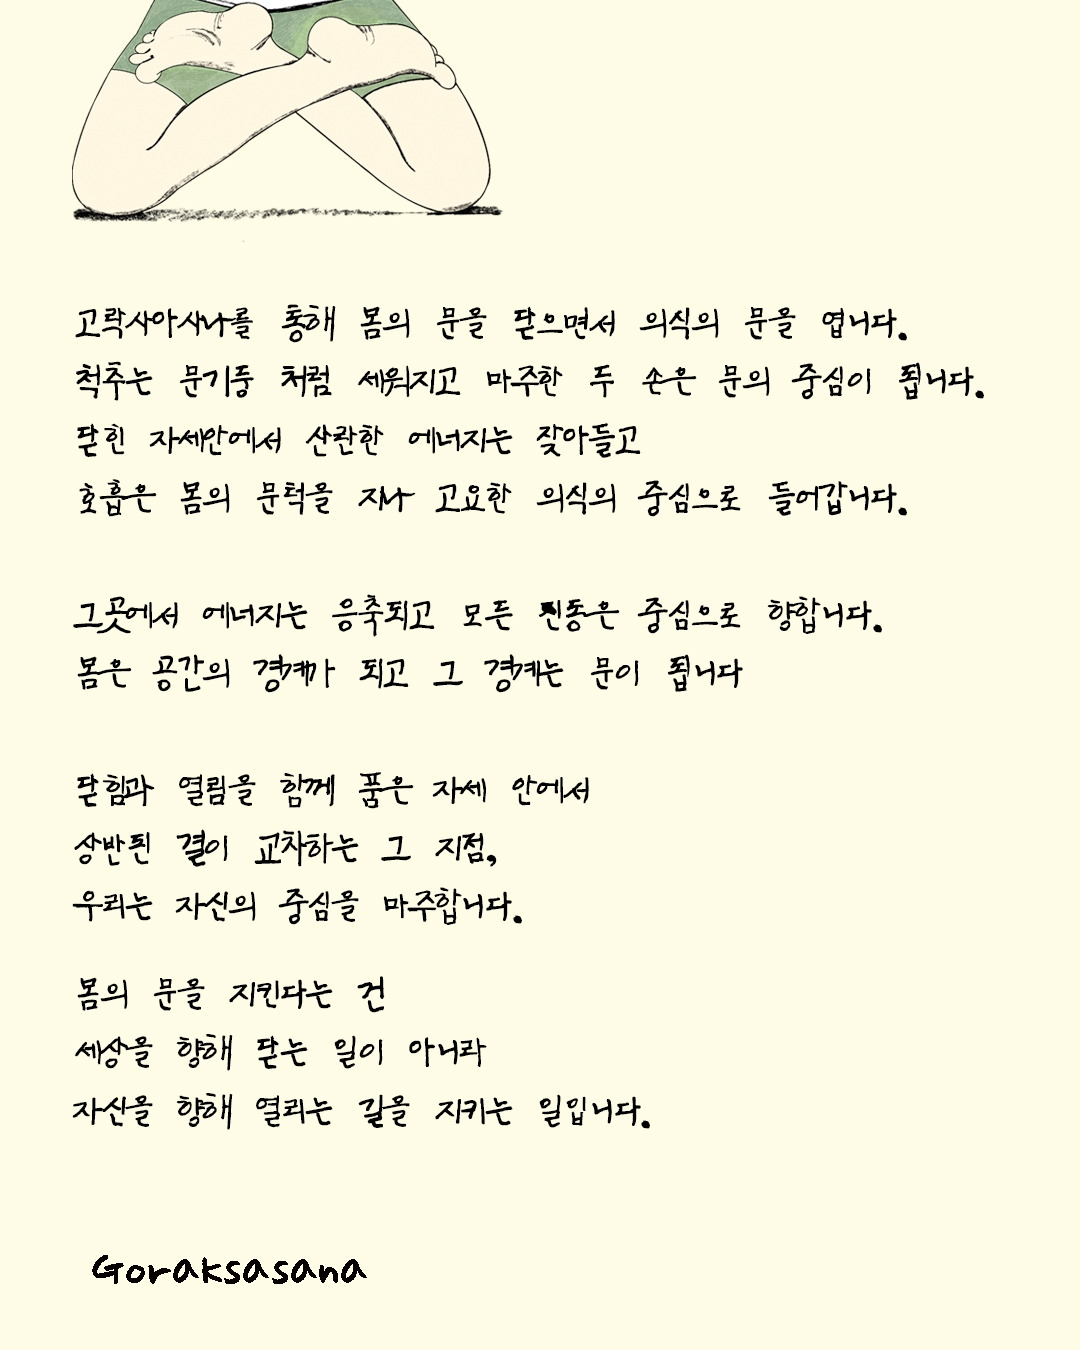 고락사아사나를 통해 몸의 문을 닫으면서 의식의 문을 엽니다.
척추는 문기둥 처럼 세워지고 마주한 두 손은 문의 중심이 됩니다.
닫힌 자세안에서 산란한 에너지는 잦아들고
호흡은 몸의 문턱을 지나 고요한 의식의 중심으로 들어갑니다.
그곳에서 에너지는 응축되고 모든 진동은 중심으로 향합니다.
몸은 공간의 경계가 되고 그 경계는 문이 됩니다
닫힘과 열림을 함께 품은 자세 안에서
상반된 결이 교차하는 그 지점,
우리는 자신의 중심을 마주합니다.
몸의 문을 지킨다는 건
세상을 향해 닫는 일이 아니라
자신을 향해 열리는 길을 지키는 일입니다.
Goraksasana